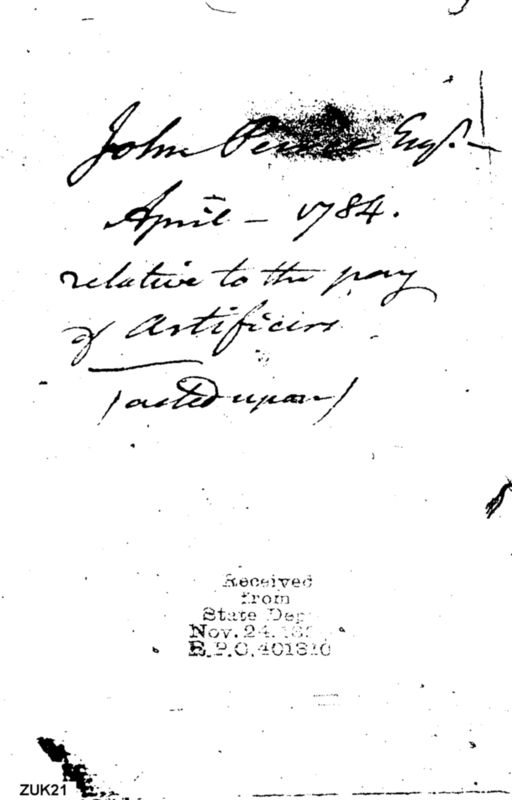 John Pierce Esqr.
April – 1784.
relative to the pay
of Artificers
(acted upon)
Received
from
State Dep
Nov. 24.
R.P.O. 401310
ZUK21